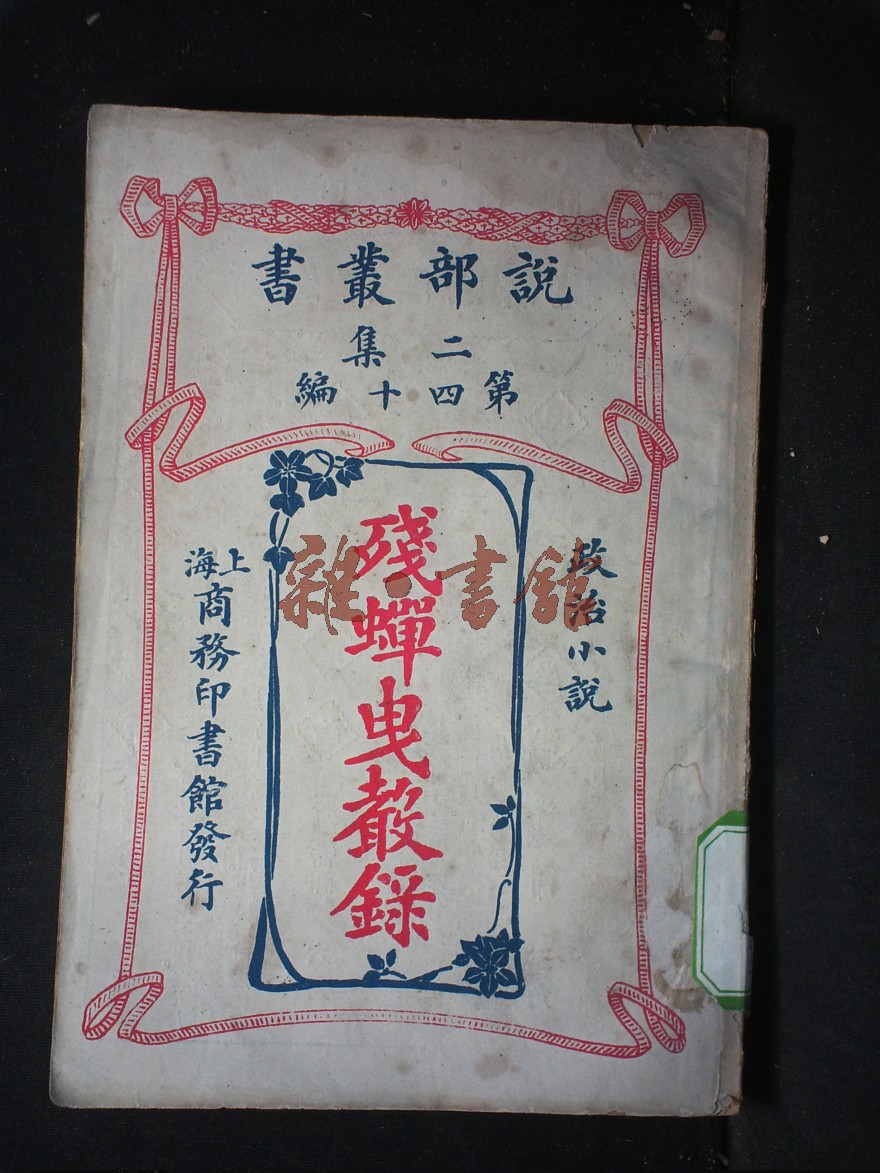 說部叢書
二集
第四十編
政治小說
殘蟬曳聲錄
上海商務印書館發行
雜·書館